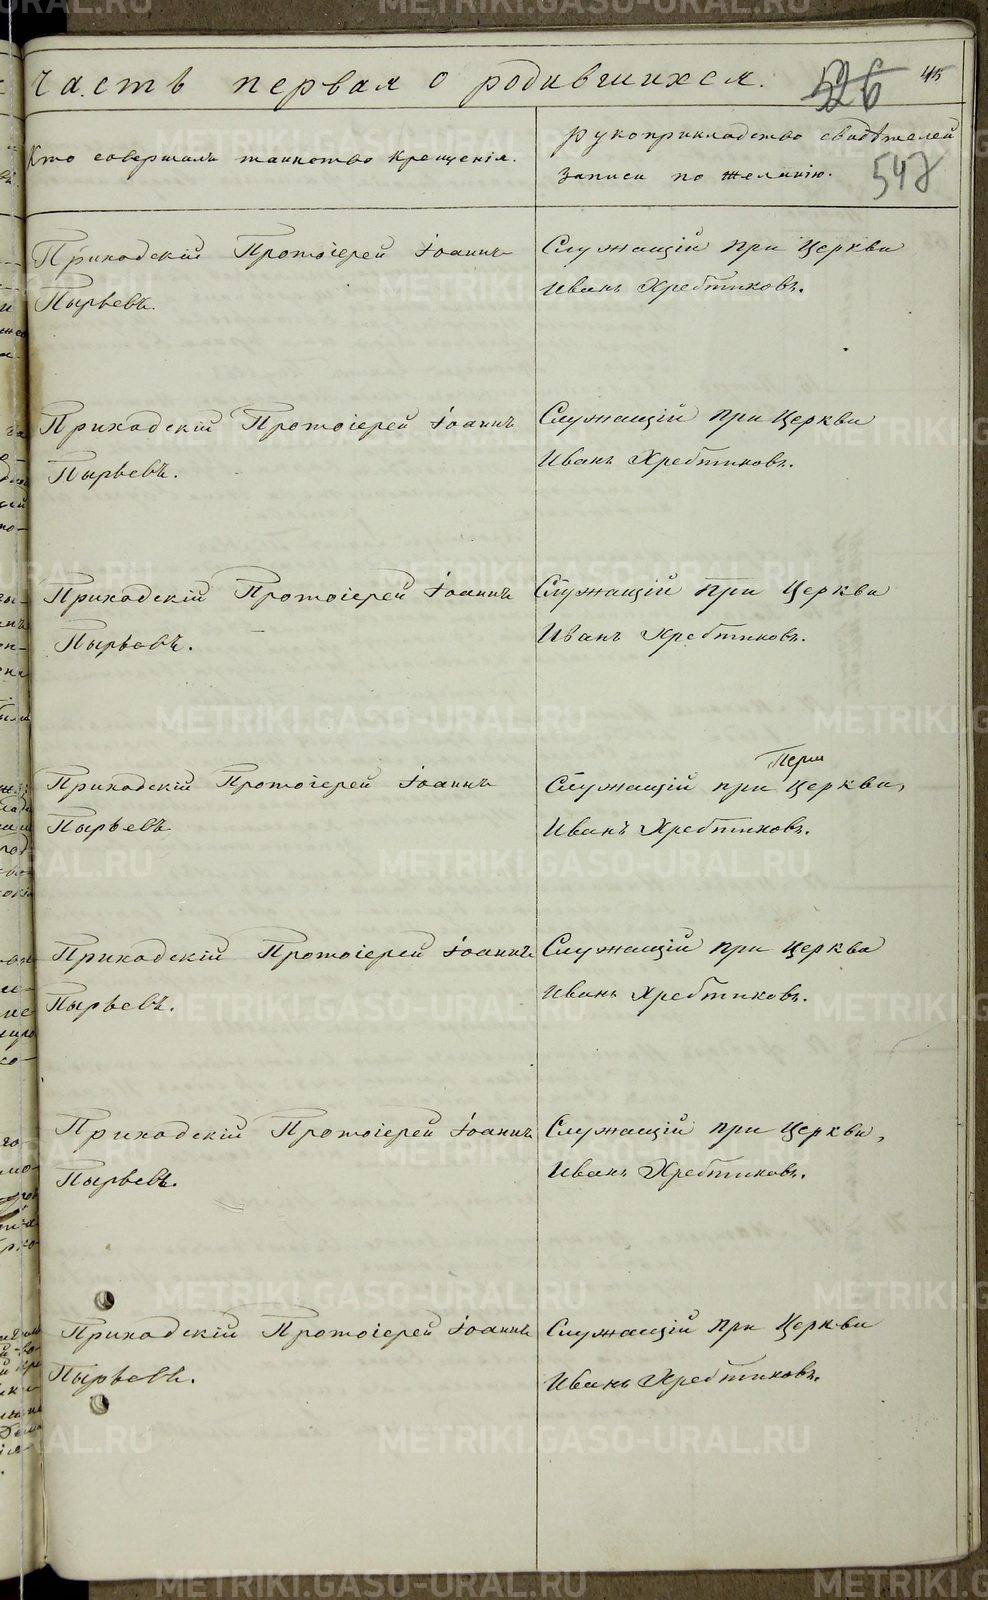 Часть первая о родившихся. 526 45
Кто совершалъ таинство крещенія.
Рукоприкладство свидѣтелей
записи по желанію. 547
Приходскій Протоіерей Іоаннъ
Пырьевъ.
Служащій при Церкви
Иванъ Хребтиковъ.
Приходскій Протоіерей Іоаннъ
Пырьевъ.
Служащій при Церкви
Иванъ Хребтиковъ.
Приходскій Протоіерей Іоаннъ
Пырьевъ.
Служащій при Церкви
Иванъ Хребтиковъ.
Приходскій Протоіерей Іоаннъ
Пырьевъ
Служащій при Церкви,
Иванъ Хребтиковъ.
Приходскій Протоіерей Іоаннъ
Пырьевъ.
Служащій при Церкви
Иванъ Хребтиковъ.
Приходскій Протоіерей Іоаннъ
Пырьевъ.
Служащій при Церкви,
Иванъ Хребтиковъ.
Приходскій Протоіерей Іоаннъ
Пырьевъ.
Служащій при Церкви
Иванъ Хребтиковъ.
METRIKI.GASO-URAL.RU